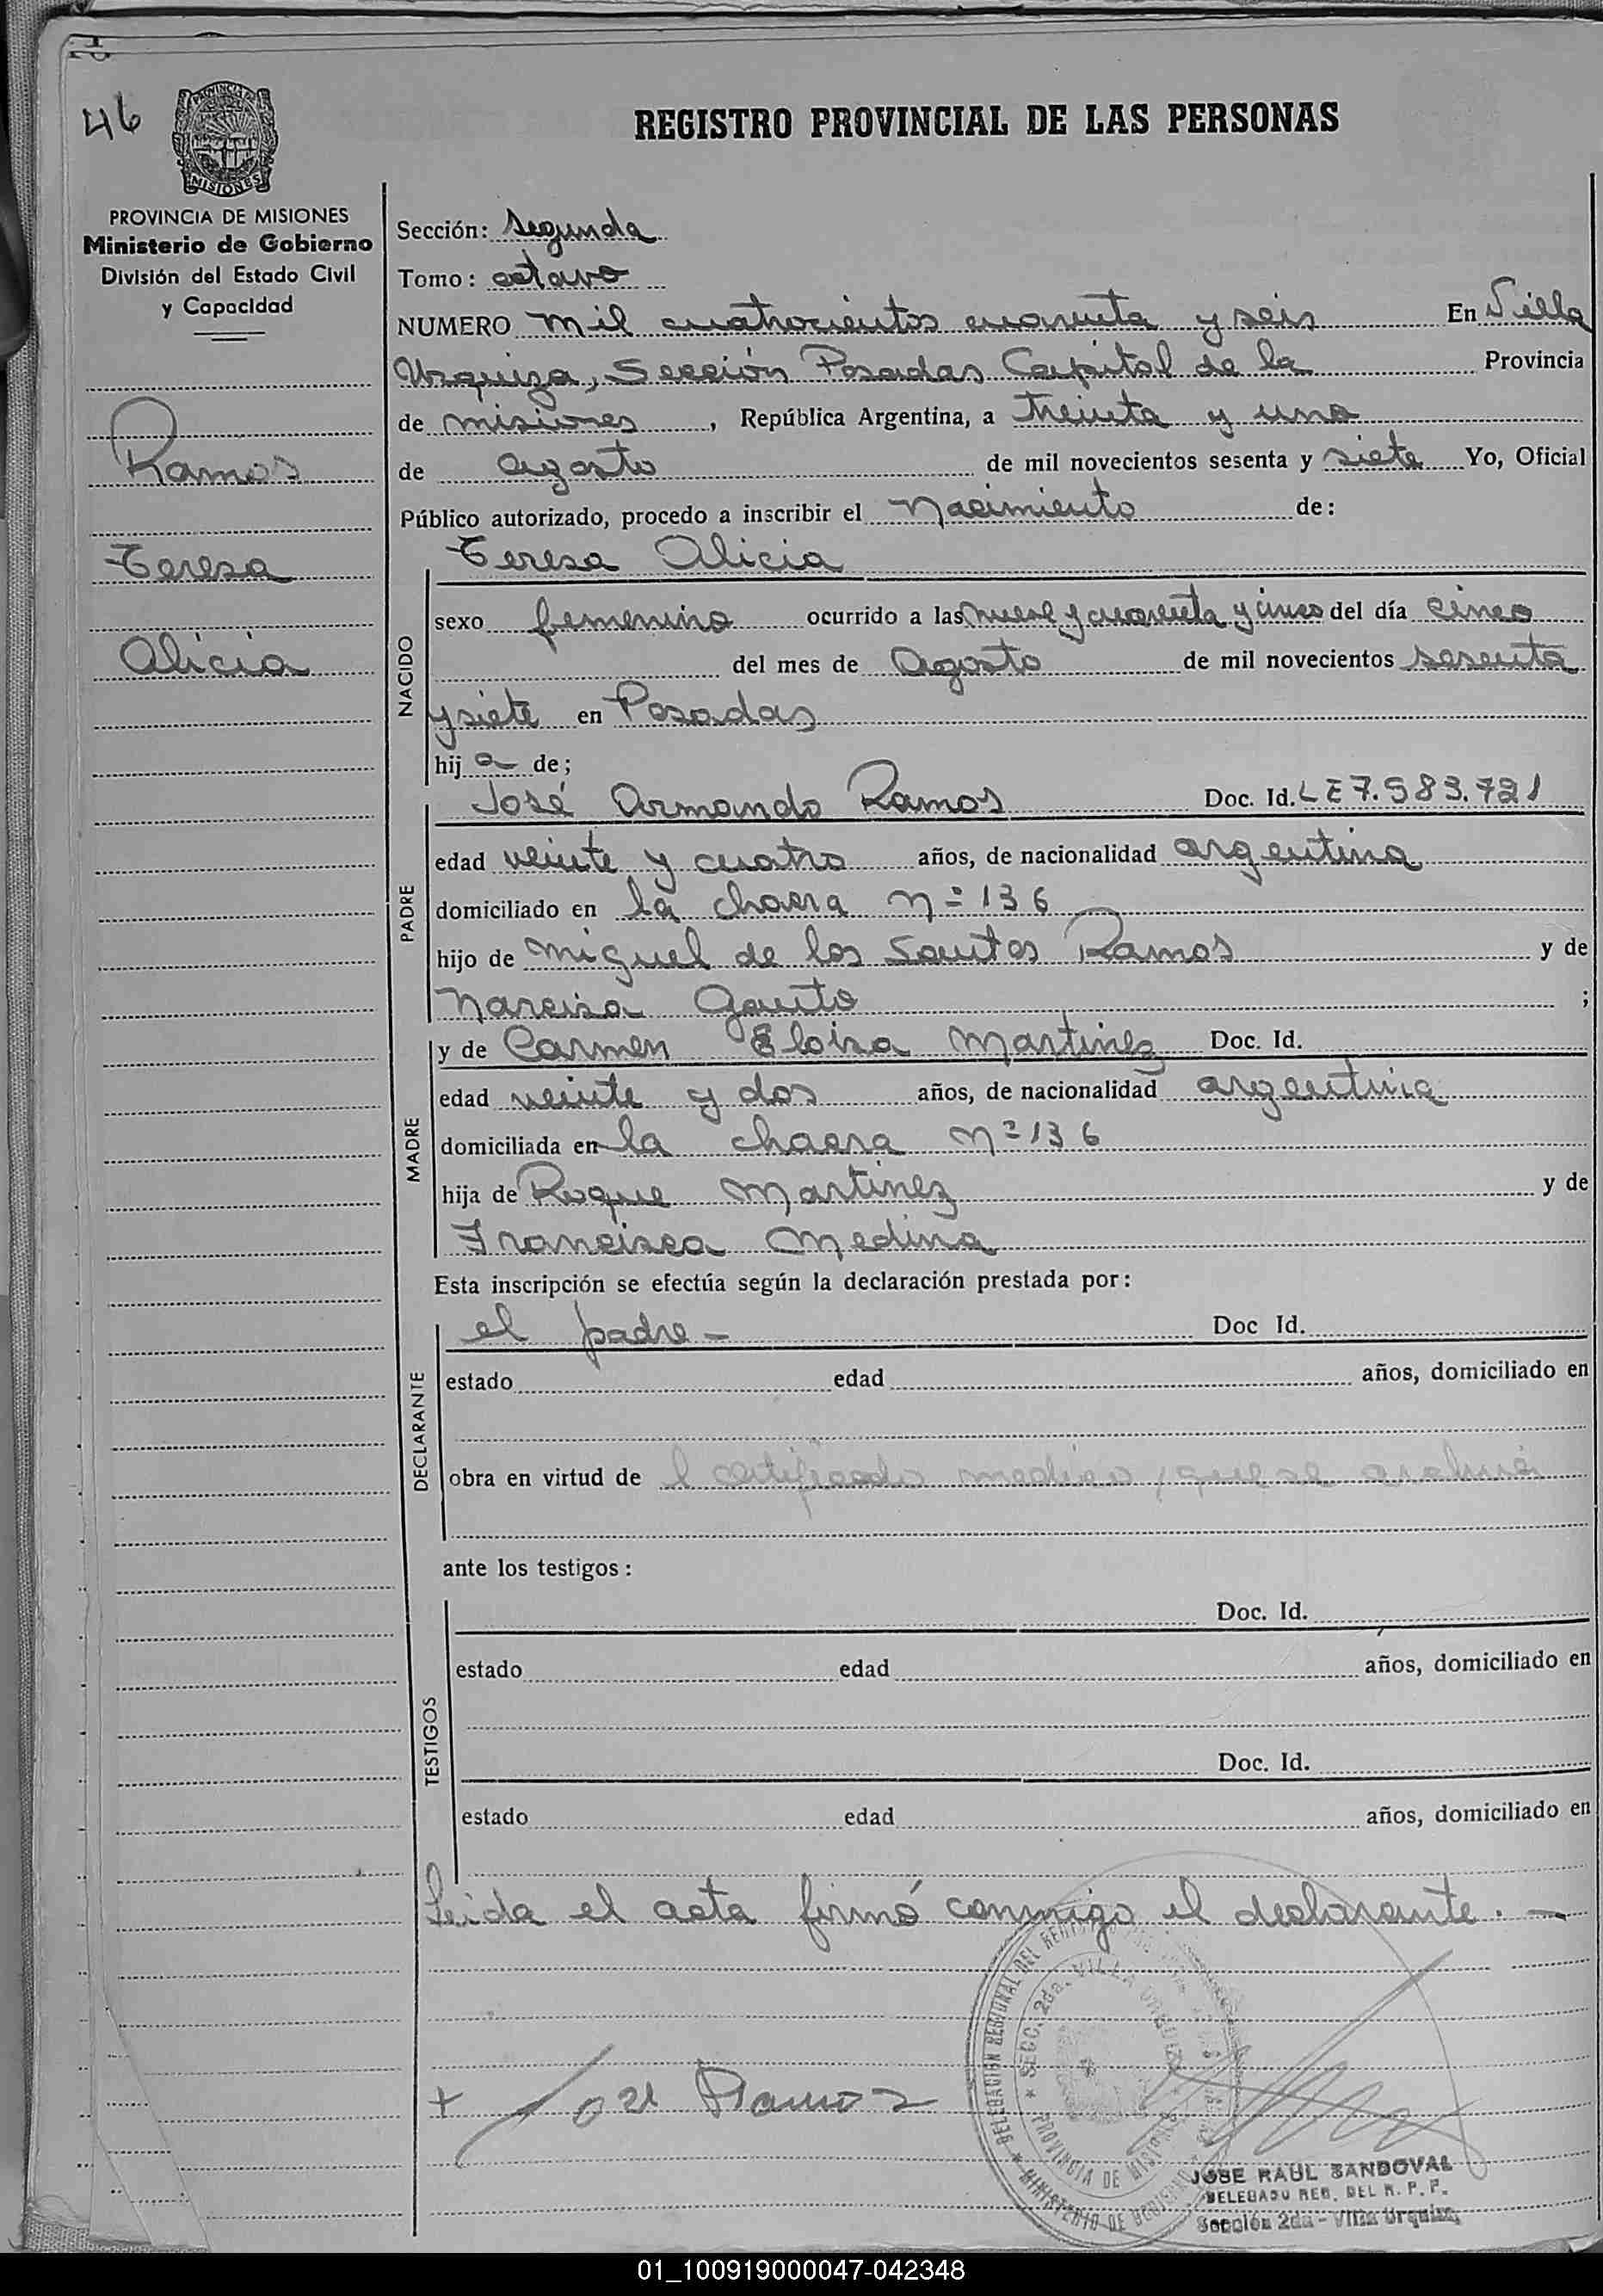 46
PROVINCIA DE MISIONES
Ministerio de Gobierno
División del Estado Civil
y Capacidad
Ramos
Teresa
Alicia
REGISTRO PROVINCIAL DE LAS PERSONAS
Sección: Segunda
Tomo: octavo
NUMERO mil cuatrocientos cuarenta y seis En Villa
Urquiza, Sección Posadas Capital de la Provincia
de misiones, República Argentina, a treinta y uno
de agosto de mil novecientos sesenta y siete Yo, Oficial
Público autorizado, procedo a inscribir el Nacimiento de:
Teresa Alicia
NACIDO
sexo femenino ocurrido a las nueve y cuarenta y cinco del día cinco
del mes de Agosto de mil novecientos sesenta
y siete en Posadas
hij a de;
PADRE
José Armando Ramos Doc. Id. LE 7.583.721
edad veinte y cuatro años, de nacionalidad argentina
domiciliado en la chacra nº 136
hijo de Miguel de los Santos Ramos y de
Narcisa Gauto ;
MADRE
y de Carmen Eloisa Martinez Doc. Id.
edad veinte y dos años, de nacionalidad argentina
domiciliada en la chacra nº 136
hija de Roque Martinez y de
Francisca Medina
Esta inscripción se efectúa según la declaración prestada por:
DECLARANTE
el padre - Doc Id.
estado edad años, domiciliado en
obra en virtud de l certificado medico, que se archiva
ante los testigos:
TESTIGOS
Doc. Id.
estado edad años, domiciliado en
Doc. Id.
estado edad años, domiciliado en
Leida el acta firmó conmigo el declarante. -
+ José Ramos
SECC. 2da. VILLA URQUIZA
PROVINCIA DE MISIONES
DELEGACION REGIONAL DEL
MINISTERIO DE GOBIERNO
JOSE RAUL SANDOVAL
DELEGADO REG. DEL R. P. P.
Sección 2da - Villa Urquiza
01_100919000047-042348